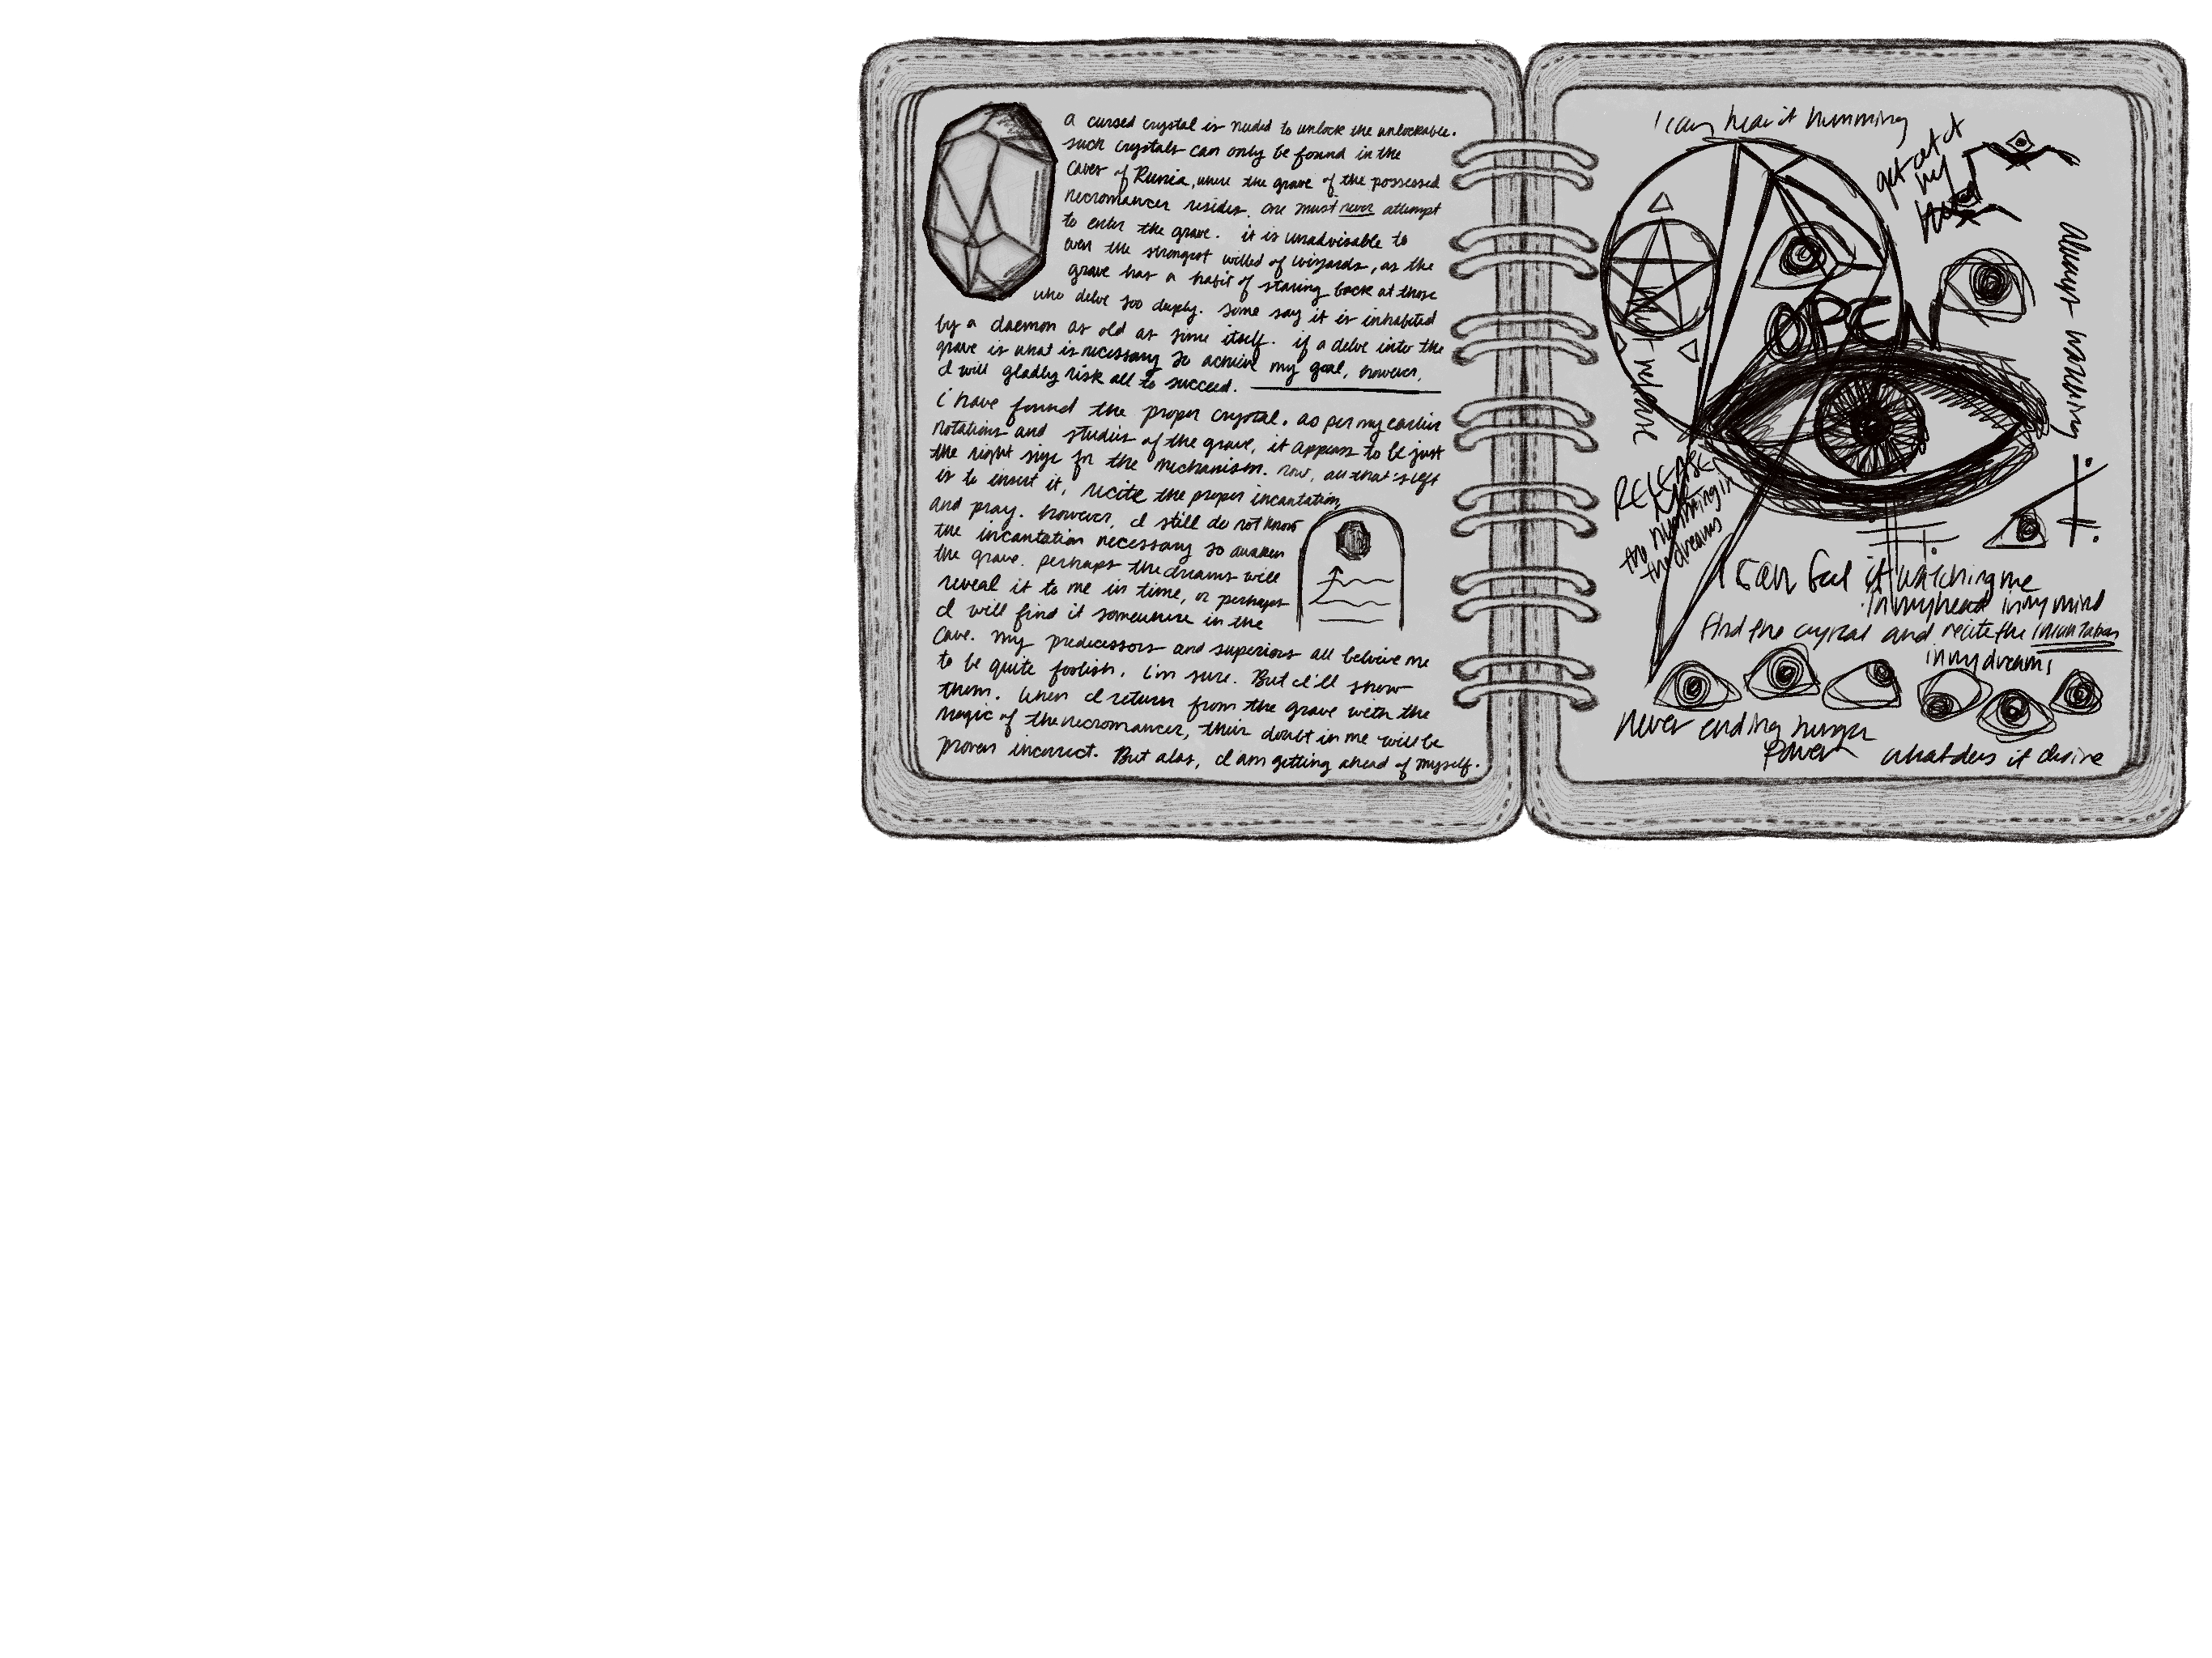 a cursed crystal is needed to unlock the unlockable.
such crystals can only be found in the
caves of Runia, where the grave of the possessed
necromancer resides. one must never attempt
to enter the grave. it is unadvisable to
even the strongest willed of wizards, as the
grave has a habit of staring back at those
who delve too deeply. some say it is inhabited
by a daemon as old as time itself. if a delve into the
grave is what is necessary to achieve my goal, however,
I will gladly risk all to succeed.
i have found the proper crystal. as per my earlier
notations and studies of the grave, it appears to be just
the right size for the mechanism. now, all that's left
is to insert it, recite the proper incantation,
and pray. however, I still do not know
the incantation necessary to awaken
the grave. perhaps the dreams will
reveal it to me in time, or perhaps
I will find it somewhere in the
cave. my predecessors and superiors all beleive me
to be quite foolish, i'm sure. But I'll show
them. when I return from the grave with the
magic of the necromancer, their doubt in me will be
proven incorrect. But alas, I am getting ahead of myself.
I can hear it humming
get it out of
my
head
always watching
OPEN
but where
RELEASE
the humming in
the dreams
I can feel it watching me
in my head in my mind
find the crystal and recite the incantation
in my dreams
never ending hunger
power
what does it desire